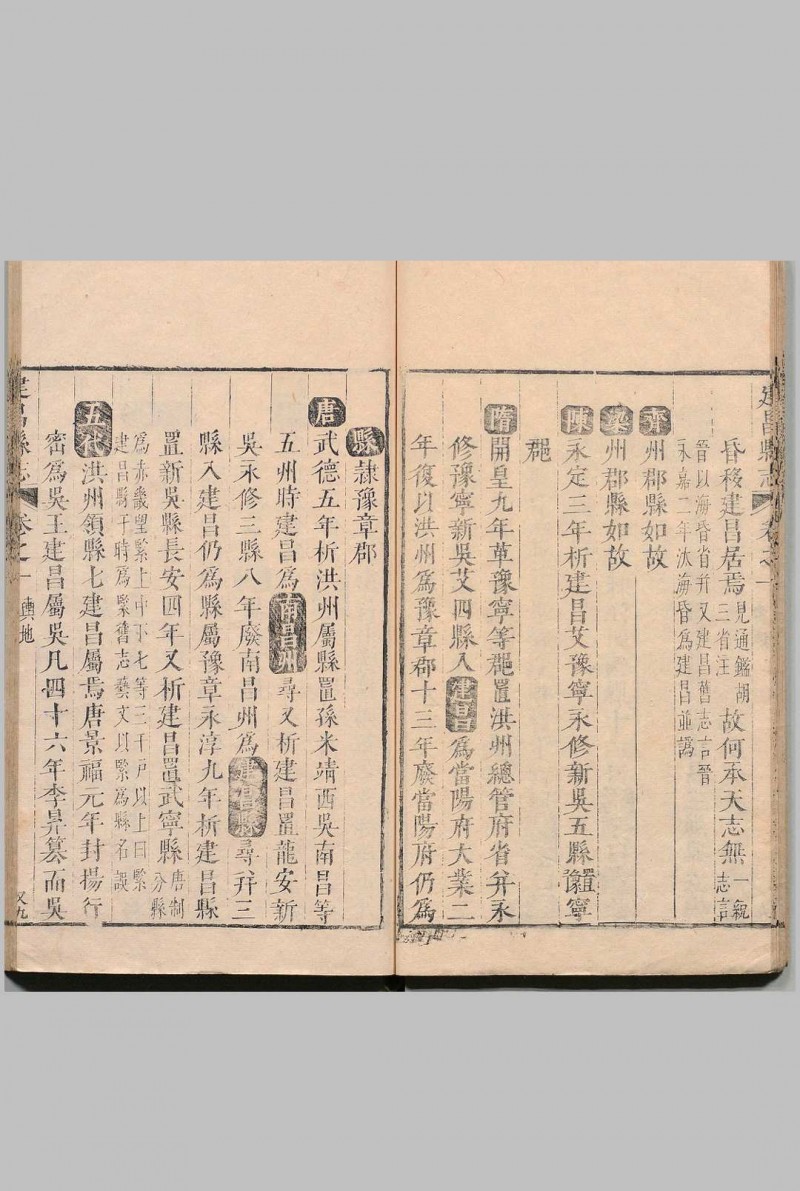 建昌縣志 卷之一
昏移建昌居焉見通鑑胡三省注故何承天志無一統志言
晉以海昏省并又建昌舊志言晉
永嘉二年汰海昏為建昌並譌
齊州郡縣如故
梁州郡縣如故
陳永定三年析建昌艾豫寧永修新吳五縣置豫寧
郡
隋開皇九年革豫寧等郡置洪州總管府省并永
修豫寧新吳艾四縣入建昌為當陽府大業二
年復以洪州為豫章郡十三年廢當陽府仍為
縣隸豫章郡
唐武德五年析洪州屬縣置孫米靖西吳南昌等
五州時建昌為南昌州尋又析建昌置龍安新
吳永修三縣八年廢南昌州為建昌縣尋并三
縣入建昌仍為縣屬豫章永淳九年析建昌縣
置新吳縣長安四年又析建昌置武寧縣唐制分縣
為赤畿望緊上中下七等三千戶以上曰緊
建昌縣于時為緊舊志藝文以緊為縣名誤
五代洪州領縣七建昌屬焉唐景福元年封揚行
密為吳王建昌屬吳凡四十六年李昪篡而吳
建昌縣志 卷之一 輿地 又九